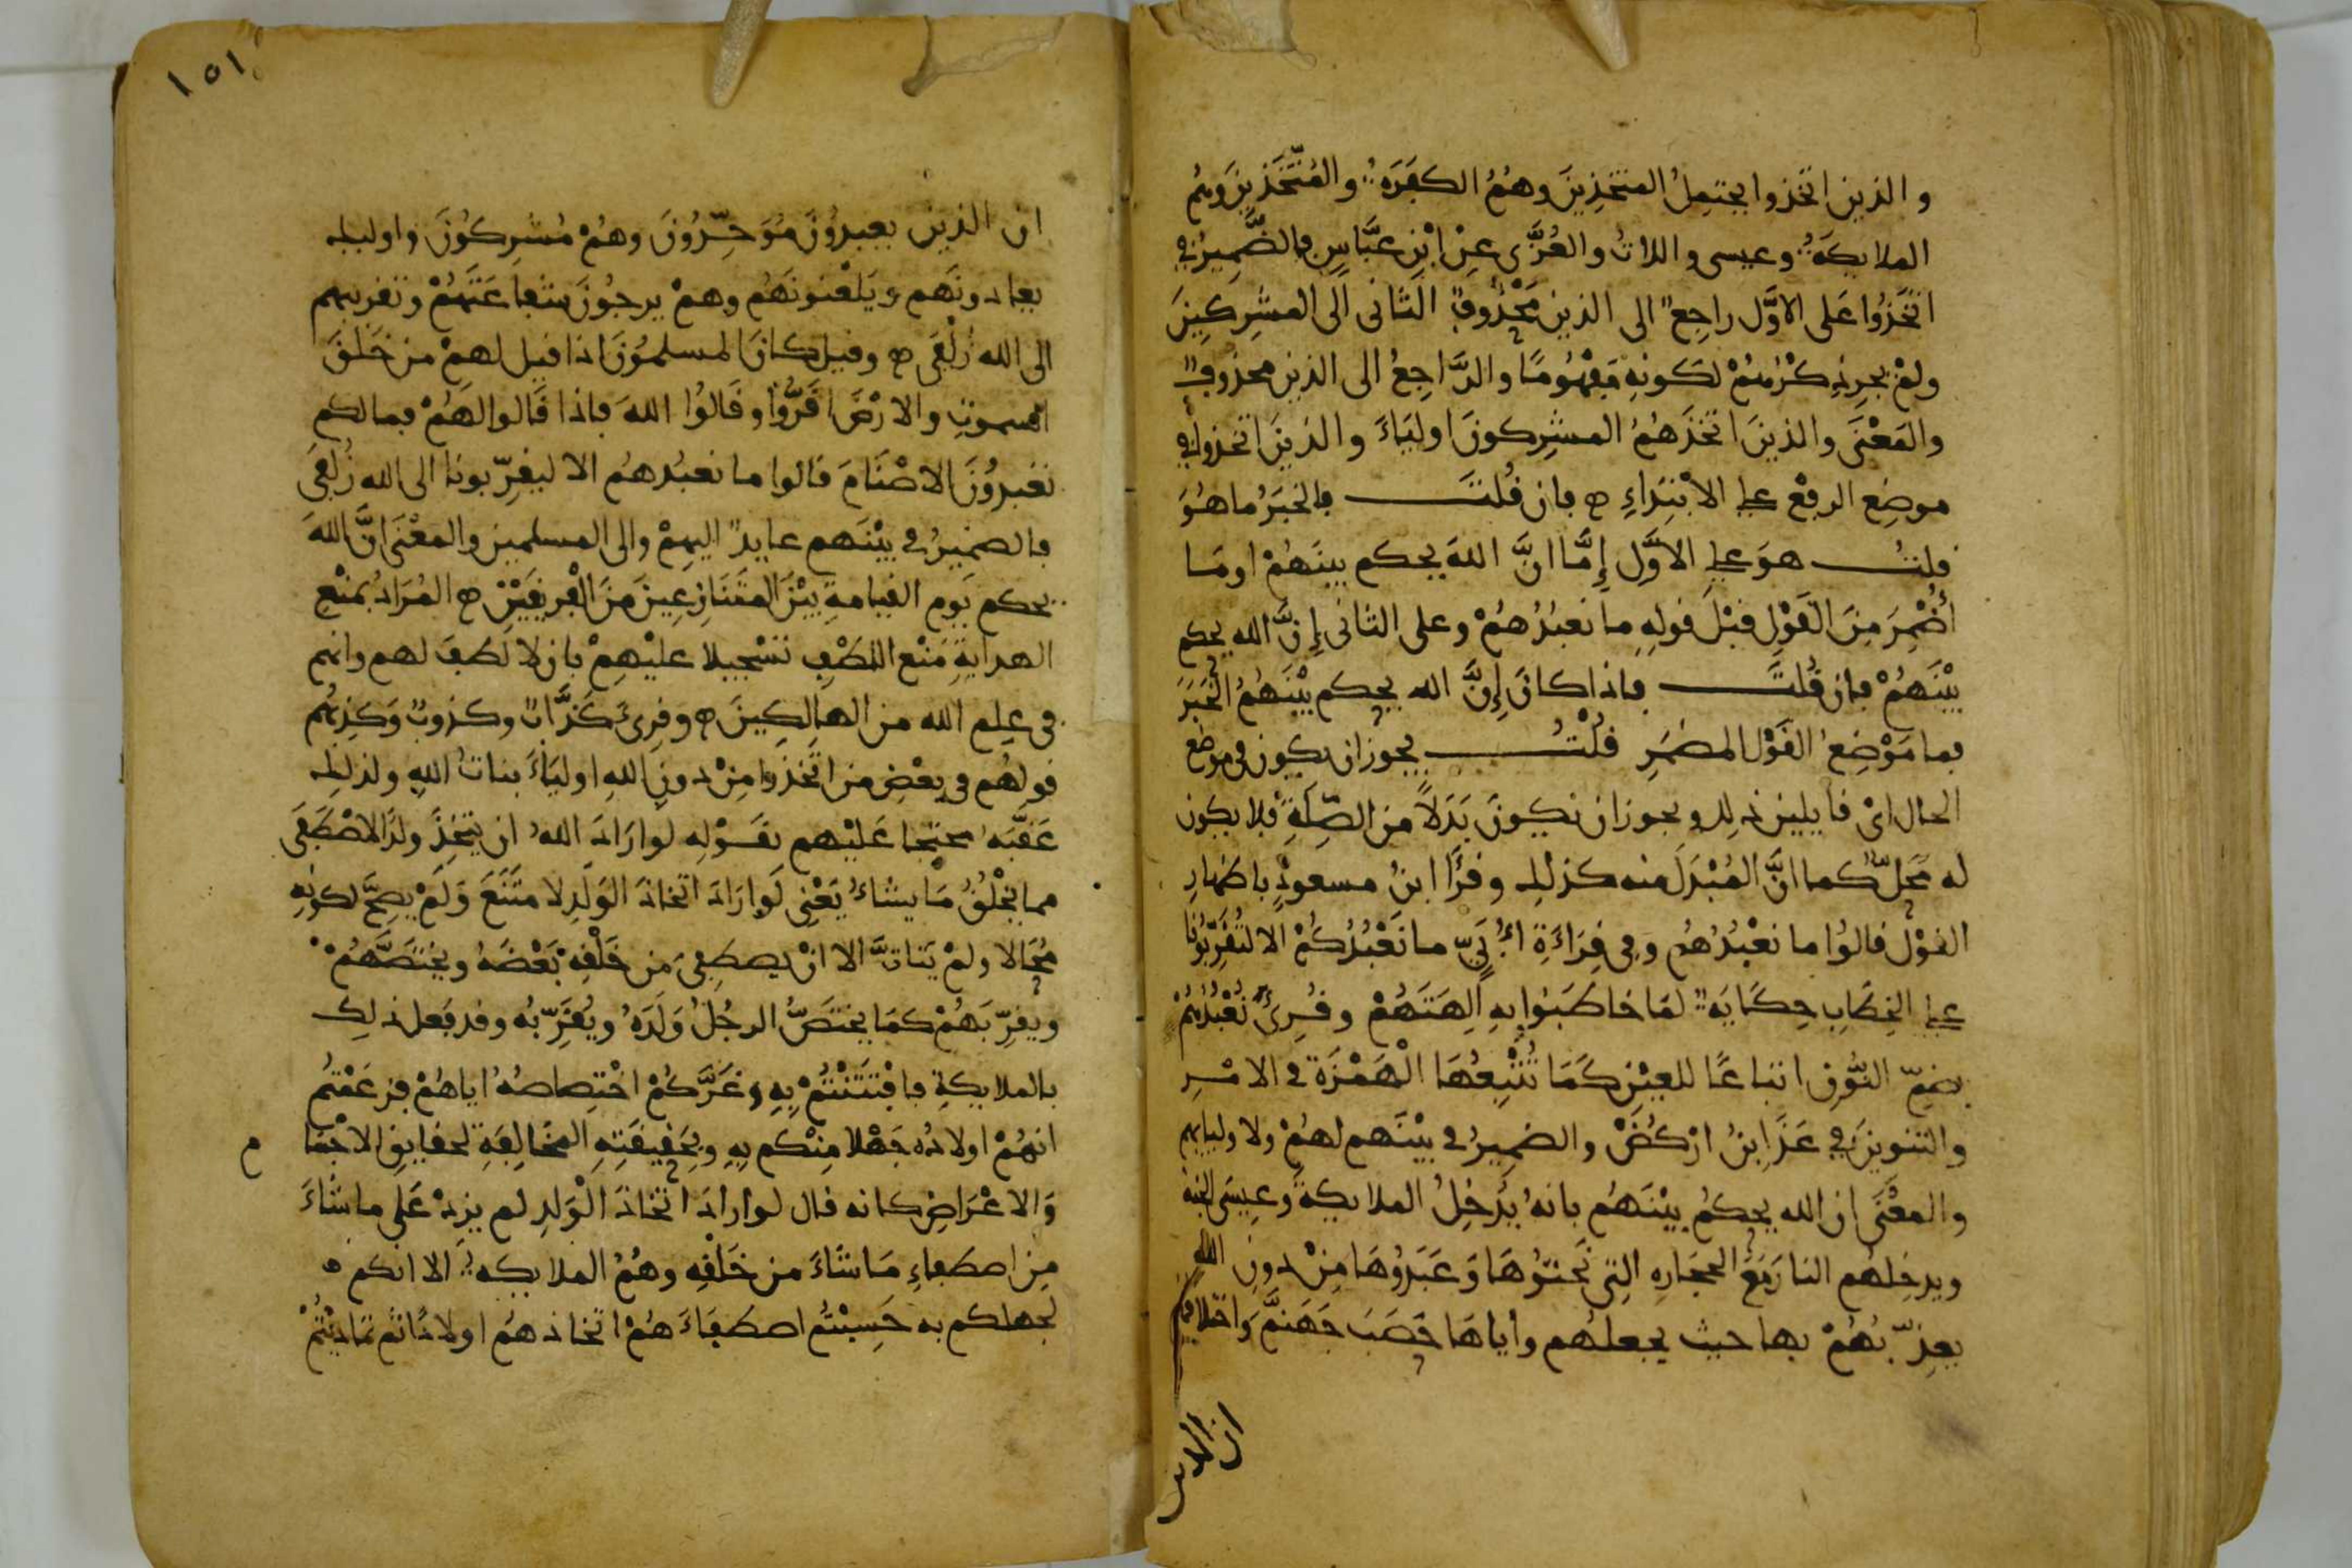 والذين اتخذوا يحتمل المتخذين وهم الكفرة والمتخذين وهم
الملايكة وعيسى واللات والعزى عن ابن عباس فالضمير في
اتخذوا على الاول راجع الى الذين محذوف الثانى الى المشركين
ولم يجر ذكرهم لكونه مفهوما والراجع الى الذين محذوف
والمعنى والذين اتخذهم المشركون اولياء والذين اتخذوا في
موضع الرفع على الابتداء فان قلت فالخبر ما هو
قلت هو على الاول إما ان الله يحكم بينهم او ما
أضمر من القول قبل قوله ما نعبدهم وعلى الثانى إن الله يحكم
بينهم فان قلت فاذا كان إن الله يحكم بينهم الخبر
فما موضع القول المضمر قلت يجوز ان يكون في موضع
الحال اى قايلين ذلك ويجوز ان تكون بدلا من الصلة فلا يكون
له محل كما ان المبدل منه كذلك وقرأ ابن مسعود باظهار
القول قالوا ما نعبدهم وفى قراءة أبي ما نعبدكم الا لتقربونا
على الخطاب حكاية لما خاطبوا به الهتهم وقرئ نعبدهم
بضم النون اتباعا للعين كما تتبعها الهمزة في الامر
والتنوين في عذابن اركض والضمير في بينهم لهم ولاوليايهم
والمعنى ان الله يحكم بينهم بانه يدخل الملايكة وعيسى الجنة
ويدخلهم النار مع الحجاره التى نحتوها وعبدوها من دون الله
يعذبهم بها حيث يجعلهم واياها حصب جهنم واختلافهم
ان الذين
١٥١
ان الذين يعبدون موحدون وهم مشركون واوليك
يعادونهم ويلعنونهم وهم يرجون شفاعتهم وتقربهم
الى الله زلفى وقيل كان المسلمون اذا قيل لهم من خلق
السموت والارض اقروا وقالوا الله فاذا قالوا لهم فما لكم
تعبدون الاصنام قالوا ما نعبدهم الا ليقربونا الى الله زلفى
فالضمير في بينهم عايد اليهم والى المسلمين والمعنى ان الله
يحكم يوم القيامة بين المتنازعين من الفريقين المراد بمنع
الهداية منع اللطف تسجيلا عليهم بان لا لطف لهم وانهم
فى علم الله من الهالكين وقرئ كذاب وكذوب وكذبهم
قولهم في بعض من اتخذوا من دون الله اولياء بنات الله ولذلك
عقبه محتجا عليهم بقوله لو اراد الله ان يتخذ ولدا لاصطفى
مما يخلق ما يشاء يعنى لو اراد اتخاذ الولد لامتنع ولم يصح لكونه
محالا ولم يتات الا ان يصطفى من خلقه بعضه ويختصهم
ويقربهم كما يختص الرجل ولده ويقربه وقد فعل ذلك
بالملايكة فافتتنتم به وغركم اختصاصه اياهم فزعمتم
انهم اولاده جهلا منكم به وبحقيقته المخالفة لحقايق الاجسام
والاعراض كانه قال لو اراد اتخاذ الولد لم يزد على ما شاء
من اصطفاء ما شاء من خلقه وهم الملايكه الا انكم
لجهلكم به حسبتم اصطفاءهم اتخاذهم اولادا ثم تماديتم